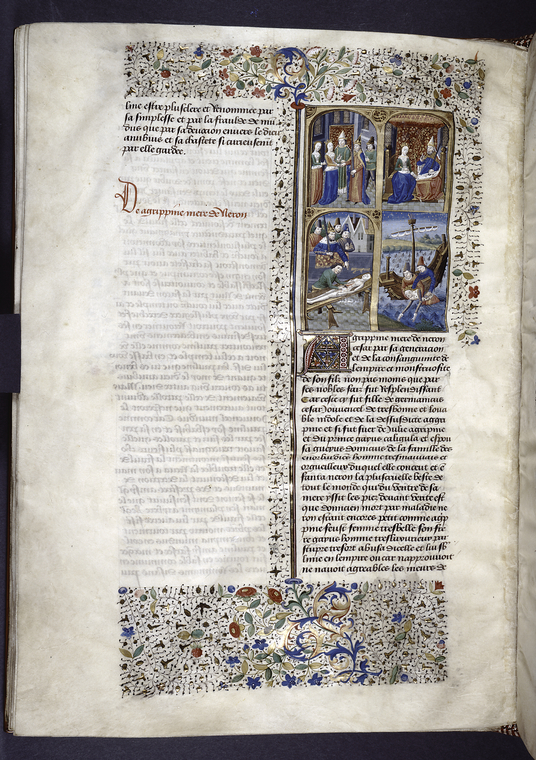 line estre plus clere et renommee par
sa simplesse et par la fraude de mu
dus que par sa deuocion enuers le dieu
anubius et sa chastete si curieusemt
par elle gardee.
De agrippine mere de Neron
Agrippine mere de neron
cesar par sa generacion
et de la consanguinite de
lempire et monseigneurie
de son filz non pas moins que par
ses nobles fais fut resplendissant
Car ceste cy fut fille de germanicus
cesar Jouuencel de tresbonne et loua
ble indole et de la dessusdicte agrip
pine et si fut suer de Julie agrippine
et du prince gayus caligula et espou
sa gneyus domicius de la famille des
homme tresmauuais et
orgueilleux duquel elle conceut et e
fanta neron la plus cruelle beste de
tout le monde qui du ventre de sa
mere yssit les piez deuant Ceste es
que domicien mort par maladie ne
ron estant encores petit comme agp
pine feust femme tresbelle son fre
re gayus homme tresluxurieux par
stupre tresort abusa dicelle et lui
lime en lempire ou car napprouuoit
ne nauoit agreables les meurs de